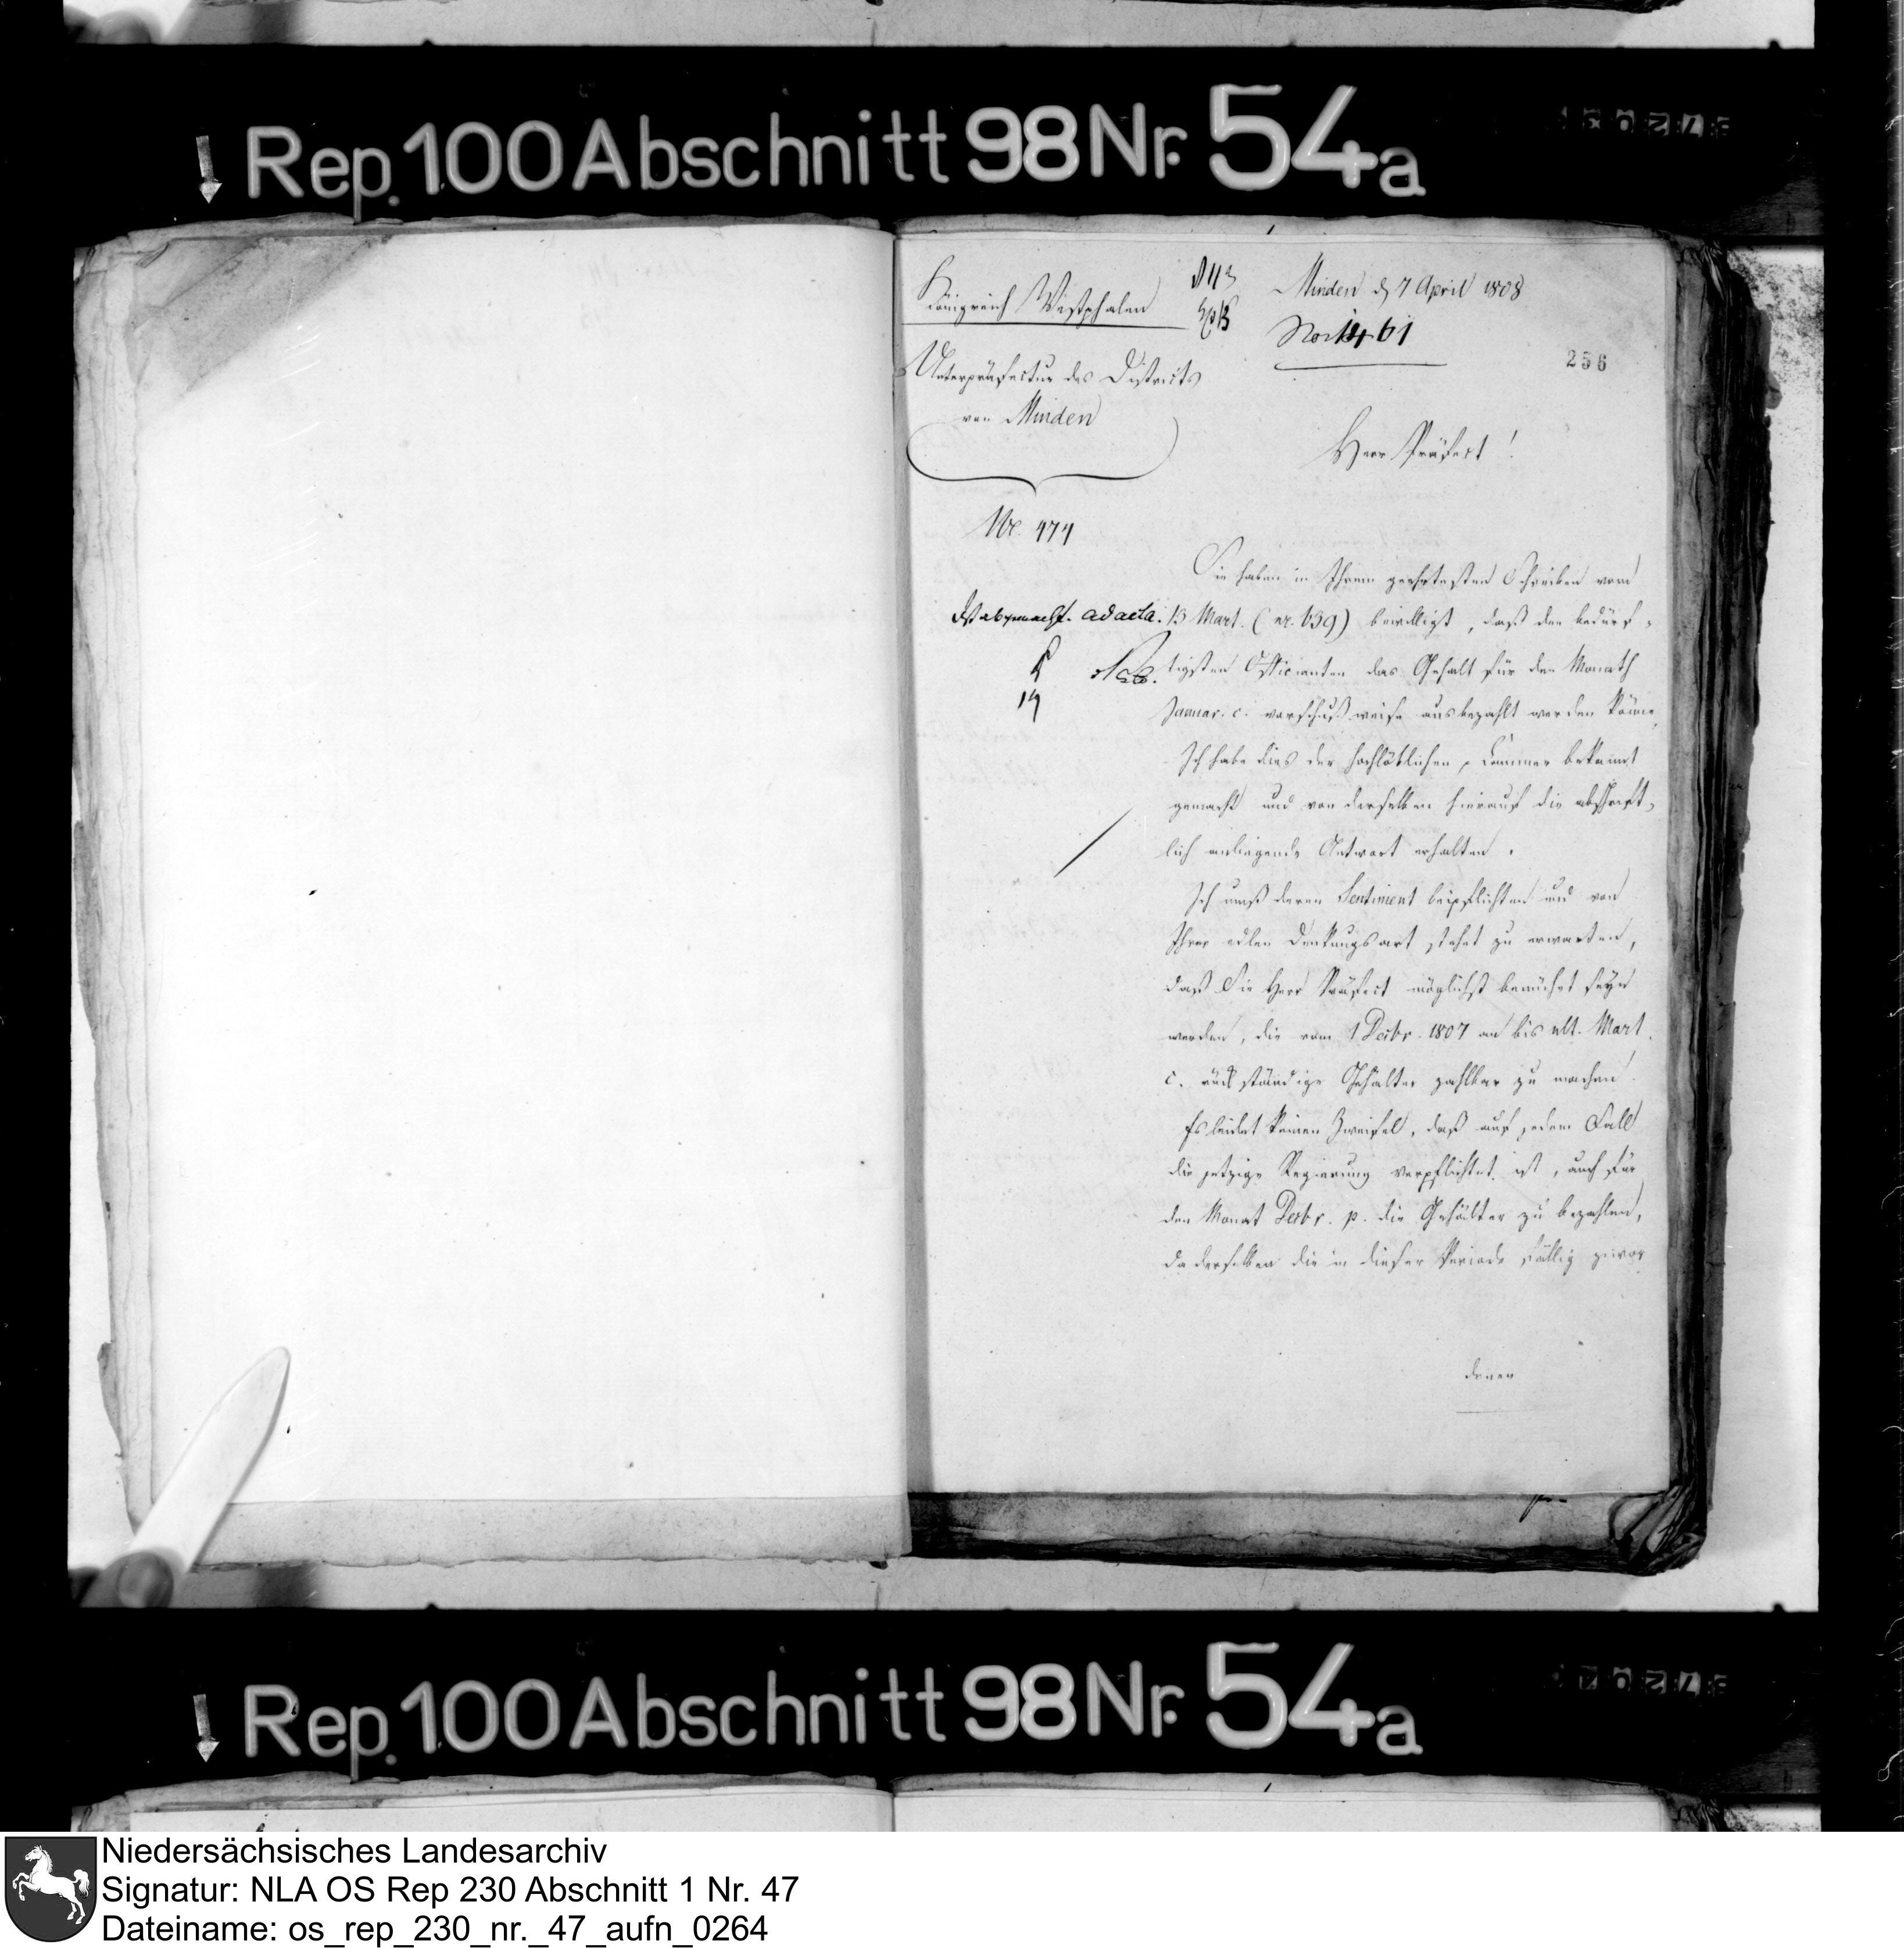 Rep. 100 Abschnitt 98 Nr. 54a
Königreich Westphalen
Minden d 7 April 1808
1461
256
Unterpräfectur des Districts
von Minden
Herr Präfect!
Nr 474
Sie haben in Ihrem geehrtesten Schreiben vom
ad acta.
13 Mart. (nr. 639) bewilligt, daß den bedürf-
tigsten Officianten das Gehalt für den Monath
19
Januar. c. vorschußweise ausbezahlt werden könne,
Ich habe dies der hochlöblichen Cammer bekannt
gemacht und von derselben hierauf die abschrift-
lich anliegende Antwort erhalten.
Ich muß deren Sentiment beipflichten und von
Ihrer edlen Denkungsart stehet zu erwarten,
daß Sie Herr Präfect möglichst bemühet seyn
werden, die vom 1 Decbr. 1807 an bis ult. Mart.
c. rückständige Gehälter zahlbar zu machen.
Es leidet keinen Zweifel, daß auf jedem Fall
die jetzige Regierung verpflichtet ist, auch für
den Monat Decbr. p. die Gehälter zu bezahlen,
da derselben die in dieser Periode fällig gewor
denen
Rep. 100 Abschnitt 98 Nr. 54a
Niedersächsisches Landesarchiv
Signatur: NLA OS Rep 230 Abschnitt 1 Nr. 47
Dateiname: os_rep_230_nr._47_aufn_0264